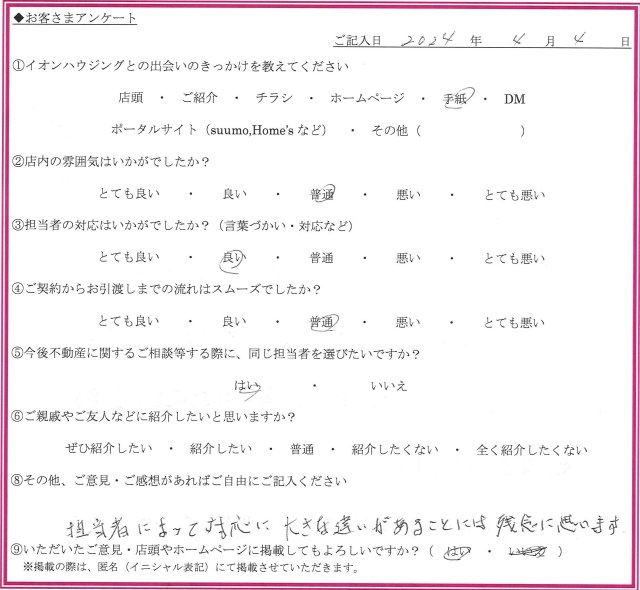 ◆お客さまアンケート
ご記入日 2024 年 4 月 4 日
①イオンハウジングとの出会いのきっかけを教えてください
店頭 ・ ご紹介 ・ チラシ ・ ホームページ ・ 手紙 ・ DM
ポータルサイト（suumo,Home'sなど） ・ その他（ ）
②店内の雰囲気はいかがでしたか？
とても良い ・ 良い ・ 普通 ・ 悪い ・ とても悪い
③担当者の対応はいかがでしたか？（言葉づかい・対応など）
とても良い ・ 良い ・ 普通 ・ 悪い ・ とても悪い
④ご契約からお引渡しまでの流れはスムーズでしたか？
とても良い ・ 良い ・ 普通 ・ 悪い ・ とても悪い
⑤今後不動産に関するご相談等する際に、同じ担当者を選びたいですか？
はい ・ いいえ
⑥ご親戚やご友人などに紹介したいと思いますか？
ぜひ紹介したい ・ 紹介したい ・ 普通 ・ 紹介したくない ・ 全く紹介したくない
⑧その他、ご意見・ご感想があればご自由にご記入ください
担当者によって対応に大きな違いがあることには残念に思います
⑨いただいたご意見・店頭やホームページに掲載してもよろしいですか？（ はい ・ いいえ ）
※掲載の際は、匿名（イニシャル表記）にて掲載させていただきます。